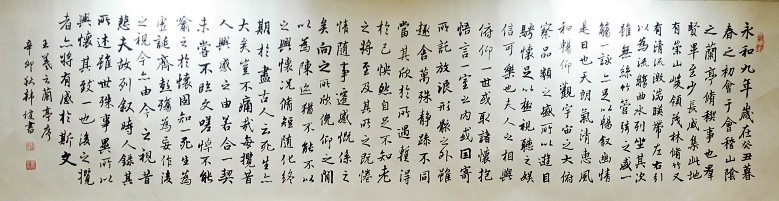 永和九年歲在癸丑暮
春之初會于會稽山陰
之蘭亭脩稧事也羣
賢畢至少長咸集此地
有崇山峻領茂林脩竹又
有清流激湍暎帶左右引
以為流觴曲水列坐其次
雖無絲竹管弦之盛一
觴一詠亦足以暢敘幽情
是日也天朗氣清惠風
和暢仰觀宇宙之大俯
察品類之盛所以遊目
騁懷足以極視聽之娛
信可樂也夫人之相與
俯仰一世或取諸懷抱
悟言一室之內或因寄
所託放浪形骸之外雖
趣舍萬殊靜躁不同
當其欣於所遇暫得
於己怏然自足不知老
之將至及其所之既惓
情隨事遷感慨係之
矣向之所欣俛仰之間
以為陳迹猶不能不以
之興懷況脩短隨化終
期於盡古人云死生亦
大矣豈不痛哉每攬昔
人興感之由若合一契
未嘗不臨文嗟悼不能
喻之於懷固知一死生為
虛誕齊彭殤為妄作後
之視今亦由今之視昔
悲夫故列敘時人錄其
所述雖世殊事異所以
興懷其致一也後之攬
者亦將有感於斯文
王羲之蘭亭序
辛卯秋韓書